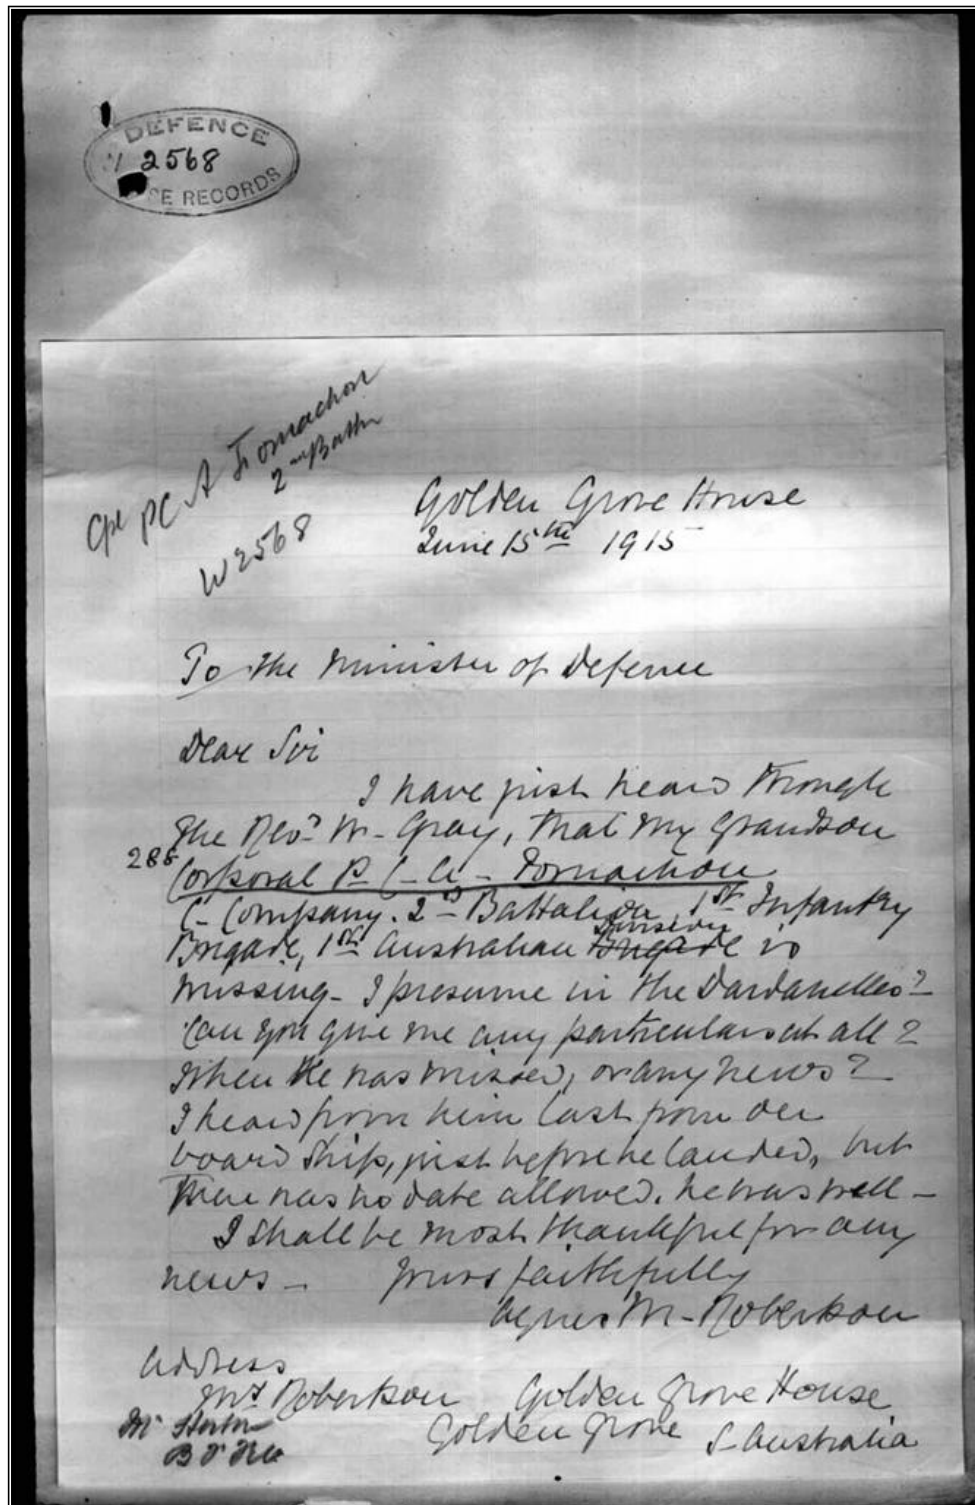 DEFENCE
2568
SE RECORDS
Cpl P C A Tornachon
2nd Battn
W 2568
Golden Grove House
June 15th 1915
To the Minister of Defence
Dear Sir
I have just heard through
the Revd Mr. Gray, that my Grandson
Corporal P- C- A- Tornachon
C- Company. 2nd Battalion, 1st Infantry
Division
Brigade, 1st Australian Brigade is
missing - I presume in the Dardanelles?
Can you give me any particulars at all?
When he was missed, or any news?
I heard from him last from
board ship, just before he landed, but
there was no date allowed. he was well -
I shall be most thankful for any
news - yours faithfully
Agnes M- Robertson
Address
Mrs Robertson Golden Grove House
Golden Grove S- Australia
Mr